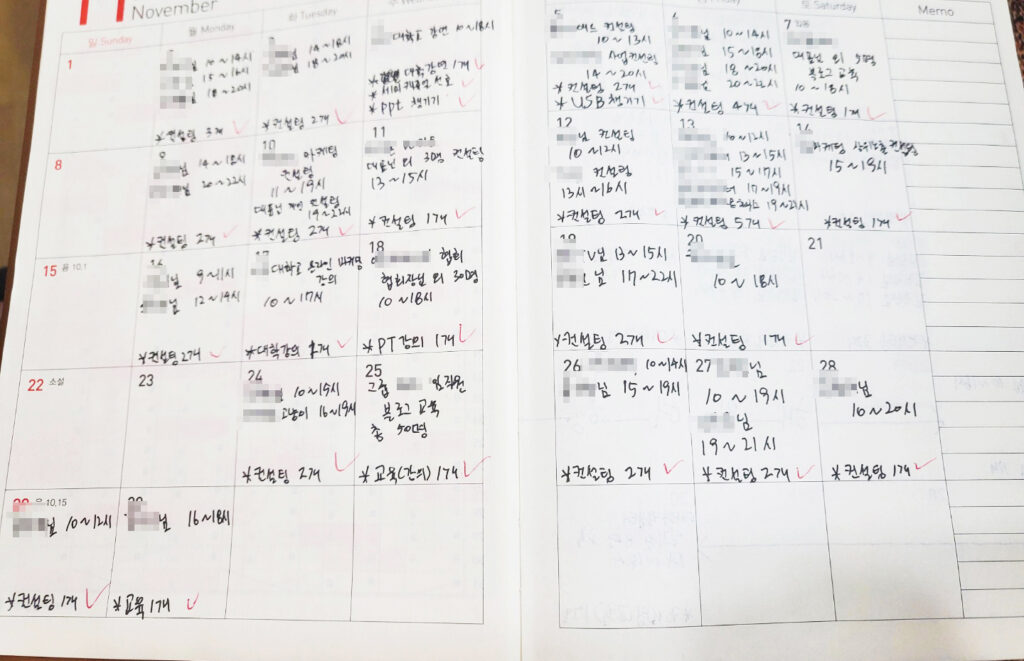 11
November
일 Sunday
월 Monday
화 Tuesday
수
Saturday
Memo
1
10~14시
15~16시
18~20시
*컨설팅 3개
님 14~18시
님 18~20시
*컨설팅 2개
대학교 강연 10~18시
대학강연 1개
*ppt 챙기기
5
컨설팅
10~13시
사업컨설팅
14~20시
*컨설팅 2개
*USB 챙기기
6
님 10~14시
님 15~18시
님 18~20시
님 20~22시
*컨설팅 4개
7
대표님 외 5명
블로그 교육
10~18시
*컨설팅 1개
8
9
님 14~18시
님 20~22시
*컨설팅 2개
10
마케팅
컨설팅
11~19시
컨설팅
19~22시
*컨설팅 2개
11
대표님 외 3명 컨설팅
13~15시
*컨설팅 1개
12
님 컨설팅
10~12시
컨설팅
13시~16시
*컨설팅 2개
13
10~12시
13~15시
15~17시
17~19시
19~21시
*컨설팅 5개
14
마케팅 상위노출 컨설팅
15~18시
*컨설팅 1개
15 음 10.1
16
님 9~11시
님 12~19시
*컨설팅 2개
17
대학교 온라인 마케팅
강의
10~17시
*대학강의 1개
18
협회
협회장님 외 30명
10~18시
*PT강의 1개
19
V님 13~15시
님 17~22시
*컨설팅 2개
20
10~18시
*컨설팅 1개
21
22 소설
23
24
님 10~15시
고냥이 16~19시
*컨설팅 2개
25
그룹 임직원
블로그 교육
총 50명
*교육(강의) 1개
26
10~14시
님 15~19시
*컨설팅 2개
27
님
10~19시
님
19~21시
*컨설팅 2개
28
님
10~20시
*컨설팅 1개
29 음 10.15
님 10~12시
*컨설팅 1개
30
님 16~18시
*교육 1개